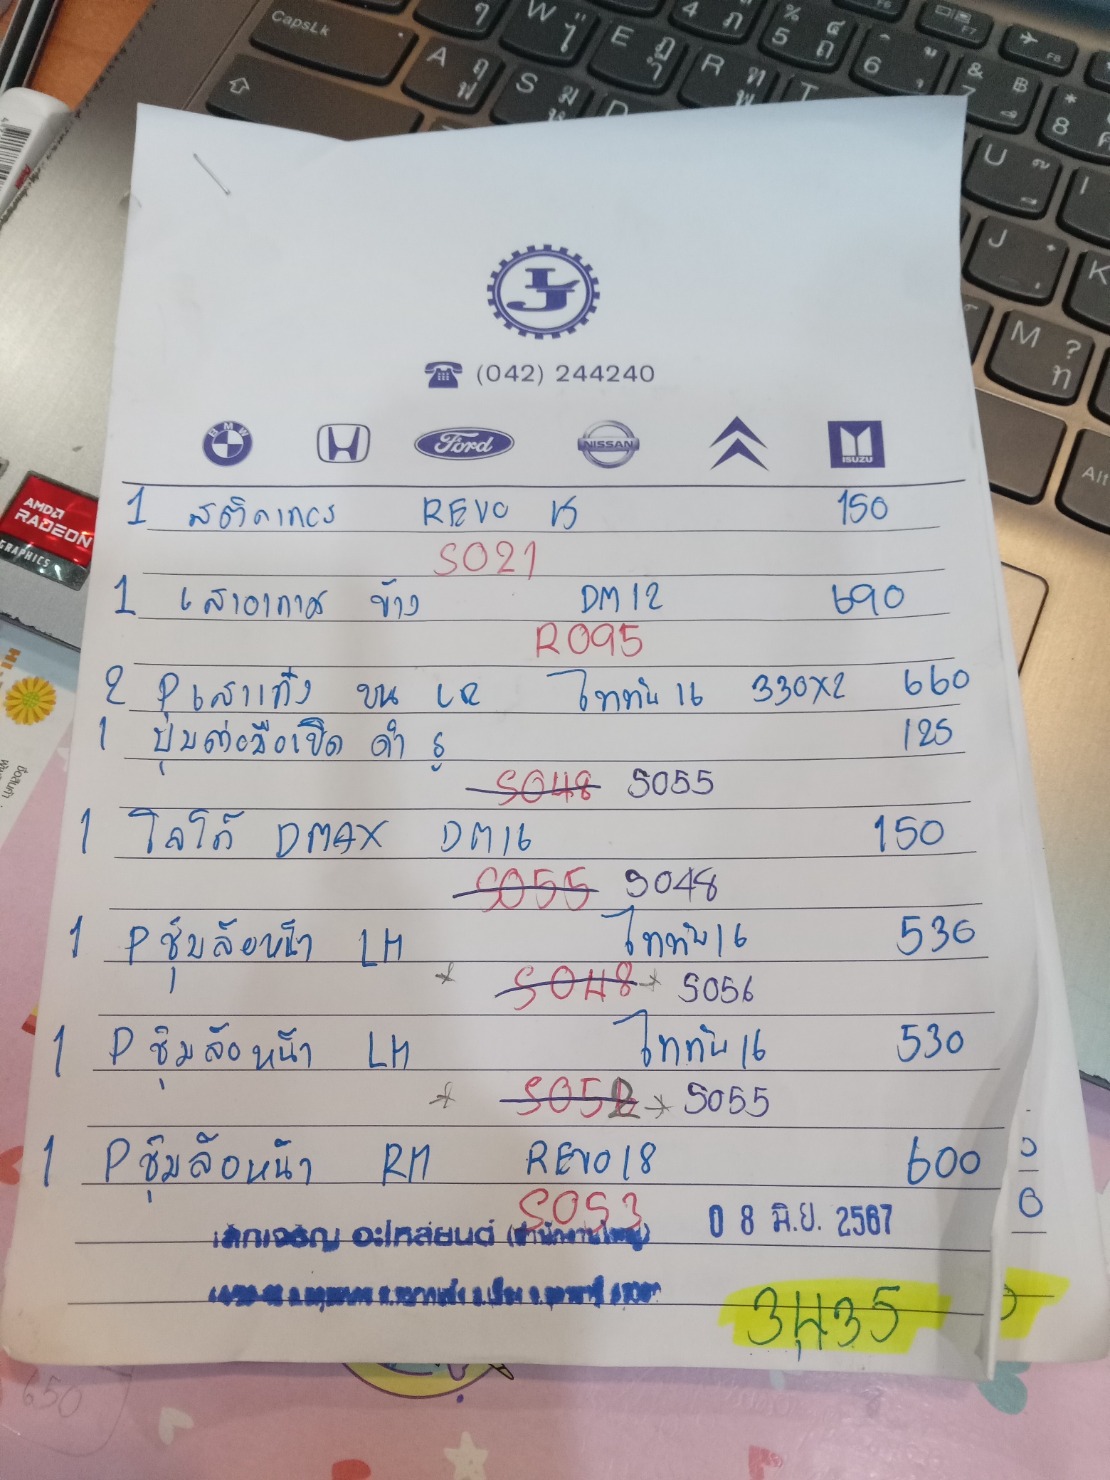 (042) 244240
BMW
Ford
NISSAN
ISUZU
1 สติกเกอร์ REVO 15 150
S021
1 เสาอากาศ ข้าง DM12 690
R095
2 P เสาแก๊ง บน LR ไททัน 16 330x2 660
1 ปุ่มต่อมือเปิด ดำ รู 125
S048 S055
1 โลโก้ DMAX DM16 150
S055 S048
1 P ซุ้มล้อหน้า LH ไททัน 16 530
S048 S056
1 P ซุ้มล้อหน้า LH ไททัน 16 530
S052 S055
1 P ซุ้มล้อหน้า RH REVO 18 600
S053
08 มิ.ย. 2567
อะไหล่ยนต์ (สำนักงานใหญ่)
3435
650
CapsLk
AMD
RADEON
GRAPHICS
W
E
R
T
A
S
D
U
I
J
K
M
Alt
4
5
6
7
8
F7
F8